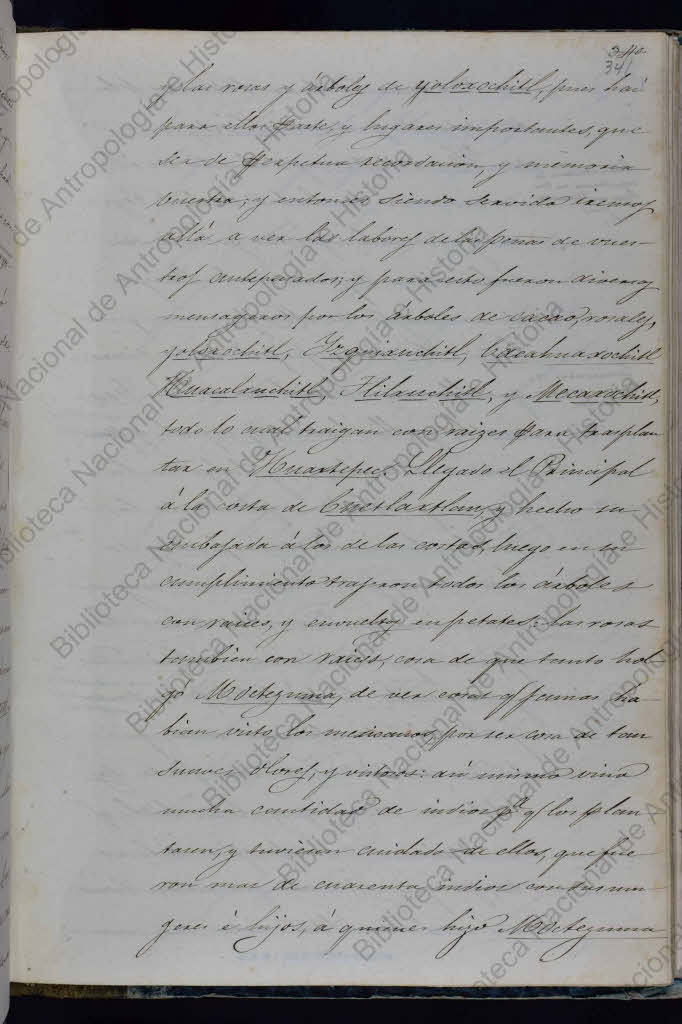 340
341
y las rosas y árboles de yoloxochitl, pues hai
para ellos parte, y lugares importantes, que
ser de perpetua recordacion, y memoria
vuestra; y entonces siendo servido iremos
allá a ver las labores de las peñas de vues-
tros antepasados; y para esto fueron diversos
mensageros por los árboles de cacao, rosales,
yoloxochitl, Yzquiauchitl, Cacahuaxochitl
Huacalxuchitl, Hilxuchitl, y Mecaxochitl,
todo lo cual traigan con raizes para trasplan
tar en Huaxtepec. Llegado el Principal
á la costa de Cuetlaxtlan, y hecho su
embajada á los de las costas, luego en su
cumplimiento trajeron todos los árboles
con raices, y envueltos en petates: las rosas
tambien con raices, cosa de que tanto hol
gó Moctezuma, de ver cosas q jamas ha-
bian visto los mexicanos, por ser cosa de tan
suaves olores, y vistosos: asi mismo vino
mucha cantidad de indios pa q los plan
tasen, y tuviesen cuidado de ellos, que fue
ron mas de cuarenta indios con sus mu
geres é hijos, á quienes hizo Moctezuma
Biblioteca Nacional de Antropología e Historia